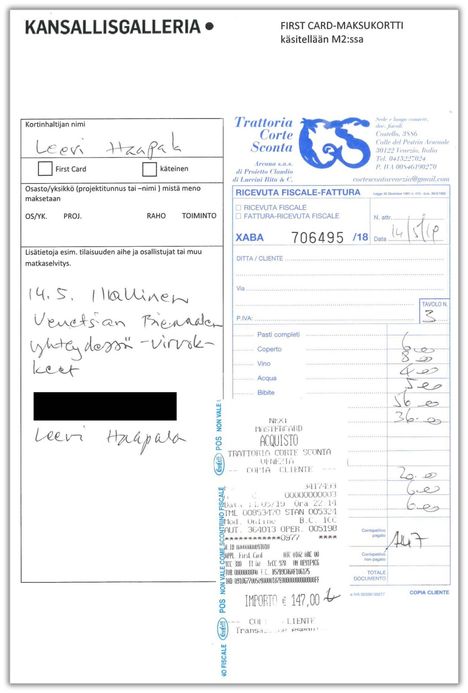 KANSALLISGALLERIA
FIRST CARD-MAKSUKORTTI
käsitellään M2:ssa
Kortinhaltijan nimi
Leevi Haapala
First Card
käteinen
Osasto/yksikkö (projektitunnus tai –nimi ) mistä meno
maksetaan
OS/YK. PROJ. RAHO TOIMINTO
Lisätietoja esim. tilaisuuden aihe ja osallistujat tai muu
matkaselvitys.
14.5. Illallinen
Venetsian Biennalen
yhteydessä -virvok-
keet
Leevi Haapala
Trattoria
Corte
Sconta
Arcana s.n.c.
di Proietto Claudio
di Lucrini Rita & C.
Sede e luogo conserv.
doc. fiscali
Castello, 3886
Calle del Pestrin Arsenale
30122 Venezia, Italia
Tel. 0415227024
P. IVA 00946790270
cortescontavenezia@gmail.com
RICEVUTA FISCALE-FATTURA
RICEVUTA FISCALE
FATTURA-RICEVUTA FISCALE
N. attr.
XABA 706495 /18
Data 14/5/19
DITTA / CLIENTE
Via
TAVOLO N.
P.IVA:
3
Pasti completi
Coperto 6.00
Vino 8.00
Acqua 4.00
Bibite 5.00
56.00
36.00
20.00
6.00
6.00
Corrispettivo
pagato
147
Corrispettivo
non pagato
TOTALE
DOCUMENTO
COPIA CLIENTE
POS NON VALE COME SCONTRINO FISCALE
POS NON VALE
NEXI
MASTERCARD
ACQUISTO
TRATTORIA CORTE SCONTA
VENEZIA
COPIA CLIENTE
3417493
00000000003
Ora 22:14
TML 00853470 STAN 005324
Mod. Online B.C. ICC
AUT. 364013 OPER. 005198
0977
APPL First Card
IMPORTO € 147,00
COPIA CLIENTE
Transazione eseguita